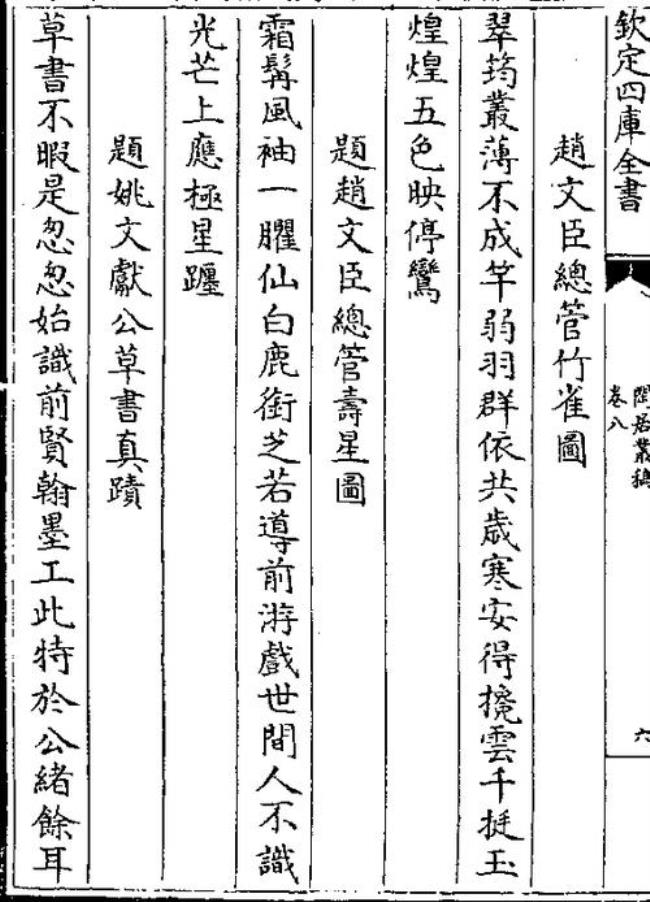 欽定四庫全書
閒居叢稿
卷八
六
趙文臣總管竹雀圖
翠筠叢薄不成竿弱羽群依共歳寒安得攙雲千挺玉
煌煌五色映停鸞
題趙文臣總管壽星圖
霜髯風袖一臞仙白鹿銜芝若導前游戲世間人不識
光芒上應極星躔
題姚文獻公草書真蹟
草書不暇是怱怱始識前賢翰墨工此特於公緒餘耳